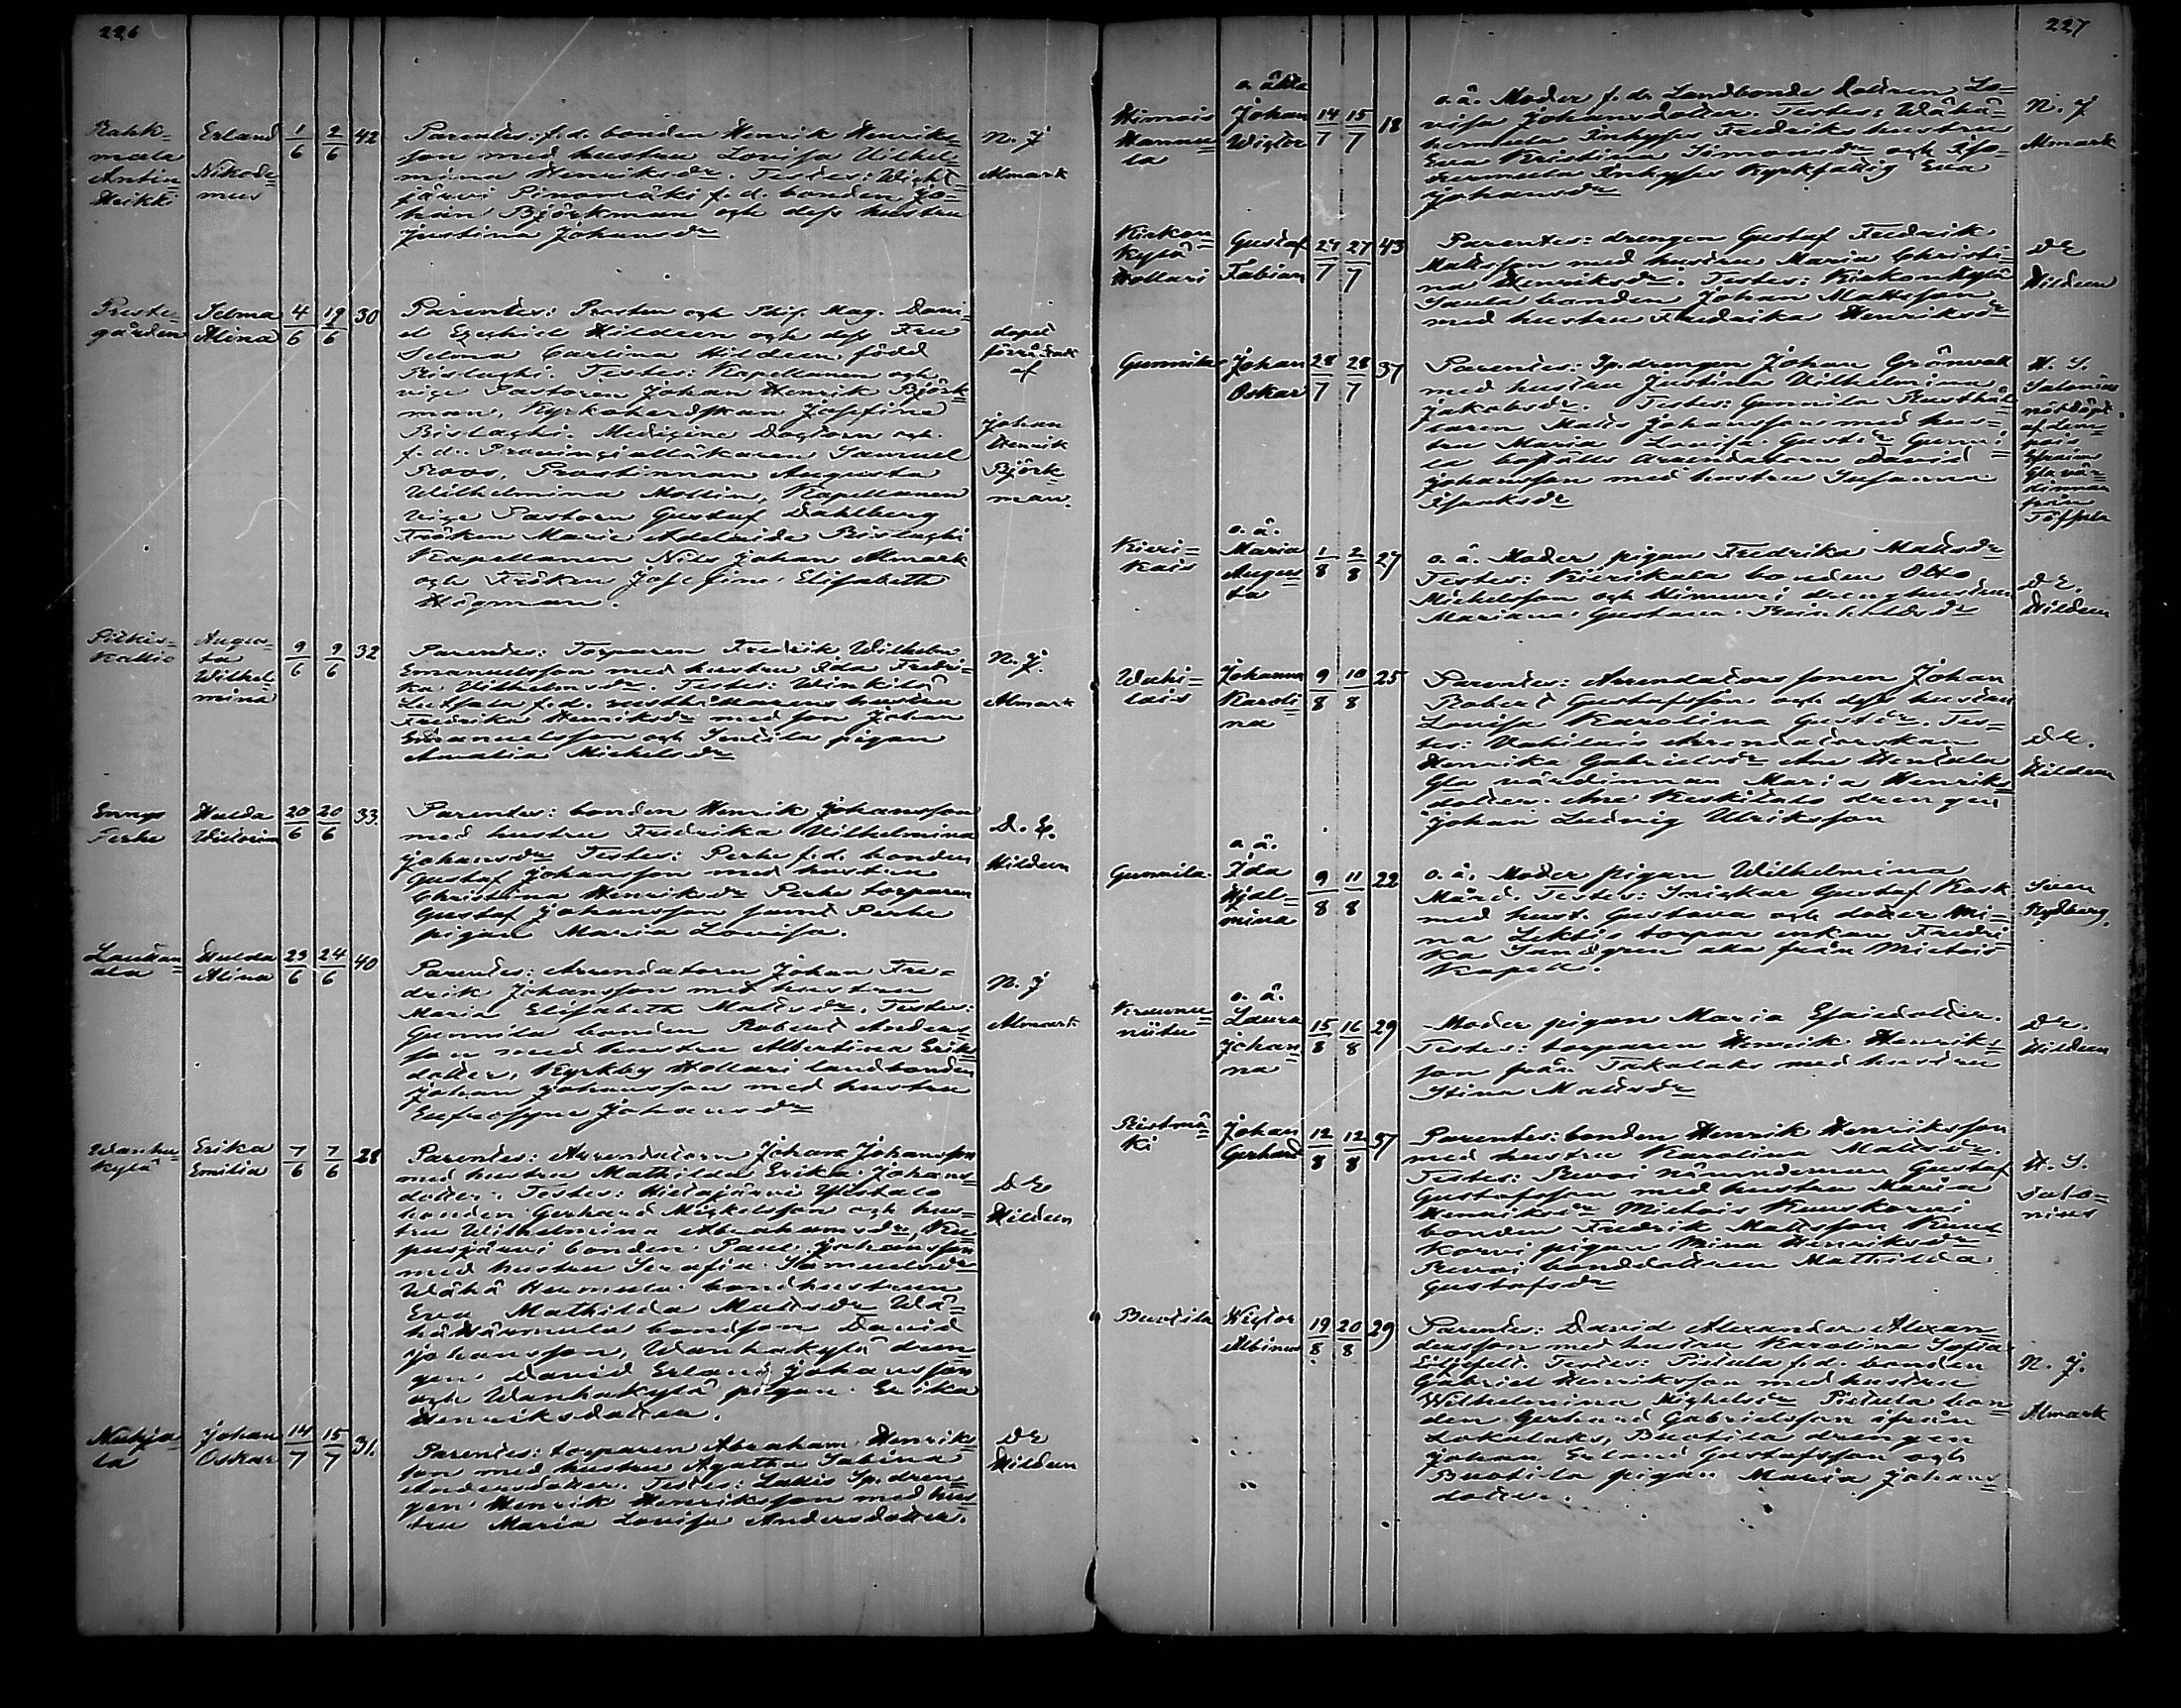 226
Erland 1/6 2/6 42 Parentes: f.d. bonden Henrik Henriks-
son med hustru Lovisa Vilhel-
mina Henriksdr. Testes:
f.d. bonden Jo-
han Björkman och dess hustru
Justina Johansdr
Antin-
Heikki
Nikode-
mus
N. J
Almark
Preste-
gården
Selma
Alina
4/6 19/6 30
Parentes: Prosten och Mag. Dani-
el Ezechiel Hildeen och dess Fru
Selma Carolina Hildeen född
Testes: Kapellanen och
vice Pastoren Johan Henrik Björk-
man, Josefina
Medicine Doctorn och
f.d. Provincialläkaren Samuel
Roos, Prostinnan Augusta
Wilhelmina Mollin, Kapellanen
Vice Pastorn Gustaf Dahlberg
Fröken Maria Adelaide
Kapellanen Nils Johan Almark
och Fröken Josefina Elisabeth
Högman.
dopet
förrättadt
af
Johan
Henrik
Björk-
man.
Augus-
ta
Wilhel-
mina
9/6 9/6 32
Parentes: Torparen Fredrik Wilhelm
Emanuelsson med hustru Ida Fredri-
ka Vilhelmsdr. Testes: Winkilä
f.d. rusthållarens hustru
Fredrika Henriksdr med son Johan
Emanuelsson och pigan
Amalia Michelsdr
N. J.
Almark
Hulda
20/6 20/6 33.
Parentes: bonden Henrik Johansson
med hustru Fredrika Vilhelmina
Johansdr Testes: Perhe f.d. bonden
Gustaf Johansson med hustru
Christina Henriksdr Perhe torparen
Gustaf Johansson samt Perhe
pigan Maria Lovisa.
D. E.
Hildeen
Hulda
Alina
23/6 24/6 40
Parentes: Arrendatorn Johan Fre-
drik Johansson med hustru
Maria Elisabeth Mattsdr. Testes:
Gunnila bonden Robert Anders-
son med hustru Albertina Eriks-
dotter, Kyrkby Hollari landbonden
Johan Johansson med hustru
Eufrosyne Johansdr
N. J
Almark
Wanha-
kylä
Erika
Emilia
7/6 7/6 28
Parentes: Arrendatorn Johan Johansson
med hustru Mathilda Erika Johans-
dotter. Testes: Hietajärvi Ylistalo
bonden Gerhard Michelsson och hus-
tru Wilhelmina Abrahamsdr,
bonden Paul Johansson
med hustru Serafia Samuelsdr
Wähä Hermula bondhustrun
Eva Mathilda Mattsdr Wä-
hähärmula bondson David
Johansson, Wanhakylä dren-
gen David Erland Johansson
och Wanhakylä pigan Erika
Henriksdotter.
D E
Hildeen
Johan
Oskar
14/7 15/7 31.
Parentes: torparen Abraham Henriks-
son med hustru Agatha Sabina
Andersdotter. Testes: Lallis Sp. dren-
gen Henrik Henriksson med hus-
tru Maria Lovisa Andersdotter.
D E
Hildeen
227
o. äkta
Johan
Wictor
14/7 15/7 18
o.ä. Moder f.d. Landbonde dottren Lo-
visa Johansdotter. Testes: Wähä-
hermula Inhyses Fredriks hustru
Eva Kristina Simonsdr och Iso-
hermula Inhyses Kyrkfattig Eva
Johansdr
N. J
Almark
Kirkon-
kylä
Hollari
Gustaf
Fabian
27/7 27/7 43
Parentes: drengen Gustaf Fredrik
Mattsson med hustru Maria Christi-
na Henriksdr. Testes: Kirkonkylä
Saula bonden Johan Mattsson
med hustru Fredrika Henriksdr
D E
Hildeen
Gunnila
Johan
Oskar
28/7 28/7 37
Parentes: Sp. drengen Johan Grönvall
med hustru Justina Vilhelmina
Jakobsdr. Testes: Gunnila Rusthål-
laren Matts Johansson med hus-
tru Maria Lovisa Gustdr Gunni-
la boställs Arrendatorn David
Johansson med hustru Susanna
Isaaksdr
H. S.
Salonius
nöddöpt
af
från
Kieri-
kais
o. ä.
Maria
Augus-
ta
1/8 2/8 27
o.ä. Moder pigan Fredrika Mattsdr
Testes: Kierikala bonden Otto
Michelsson och drenghustrun
Mariana Gustava Reinholdsdr
D E.
Hildeen
Johanna
Karoli-
na
9/8 10/8 25
Parentes: Arrendators sonen Johan
Robert Gustafsson och dess hustru
Lovisa Karolina Gustdr. Tes-
tes: Arrendatorskan
Henrika Gabrielsdr
värdinnan Maria Henriks-
dotter. drengen
Johan Ludvig Ulriksson
D E.
Hildeen
Gunnila
o.ä.
Ida
Hjäl-
mina
9/8 11/8 22
o.ä. Moder pigan Wilhelmina
Mård. Testes: Snickar Gustaf Rosk
med hust. Gustava och dotter Mi-
na torpar enkan Fredri-
ka Sandgren alla från Mietois
Kapell.
Sven
Rydberg.
o. ä.
Laura
Johan-
na
15/8 16/8 29
Moder pigan Maria Esaiedotter.
Testes: torparen Henrik Henriks-
son från Takalaks med hustru
Stina Mattsdr
D E.
Hildeen
Ristimä-
ki
Johan
Gerhard
12/8 12/8 37
Parentes: bonden Henrik Henriksson
med hustru Karolina Mattsdr.
Testes: nämndeman Gustaf
Gustafsson med hustru Maria
Henriksdr Mietois
bonden Fredrik Mattsson
pigan Mina Henriksdr
bonddottren Mathilda
Gustafsdr
H. S.
Salo-
nius
Buotila
Wictor
Albinus
19/8 20/8 29
Parentes: David Alexander Alexan-
dersson med hustru Karolina Sofia
Testes: Pietula f.d. bonden
Gabriel Henriksson med hustru
Wilhelmina Michelsdr Pietula bon-
den Gerhard Gabrielsson ifrån
Lokalaks, Buotila drengen
Johan Erland Gustafsson och
Buotila pigan Maria Johans-
dotter.
N. J.
Almark